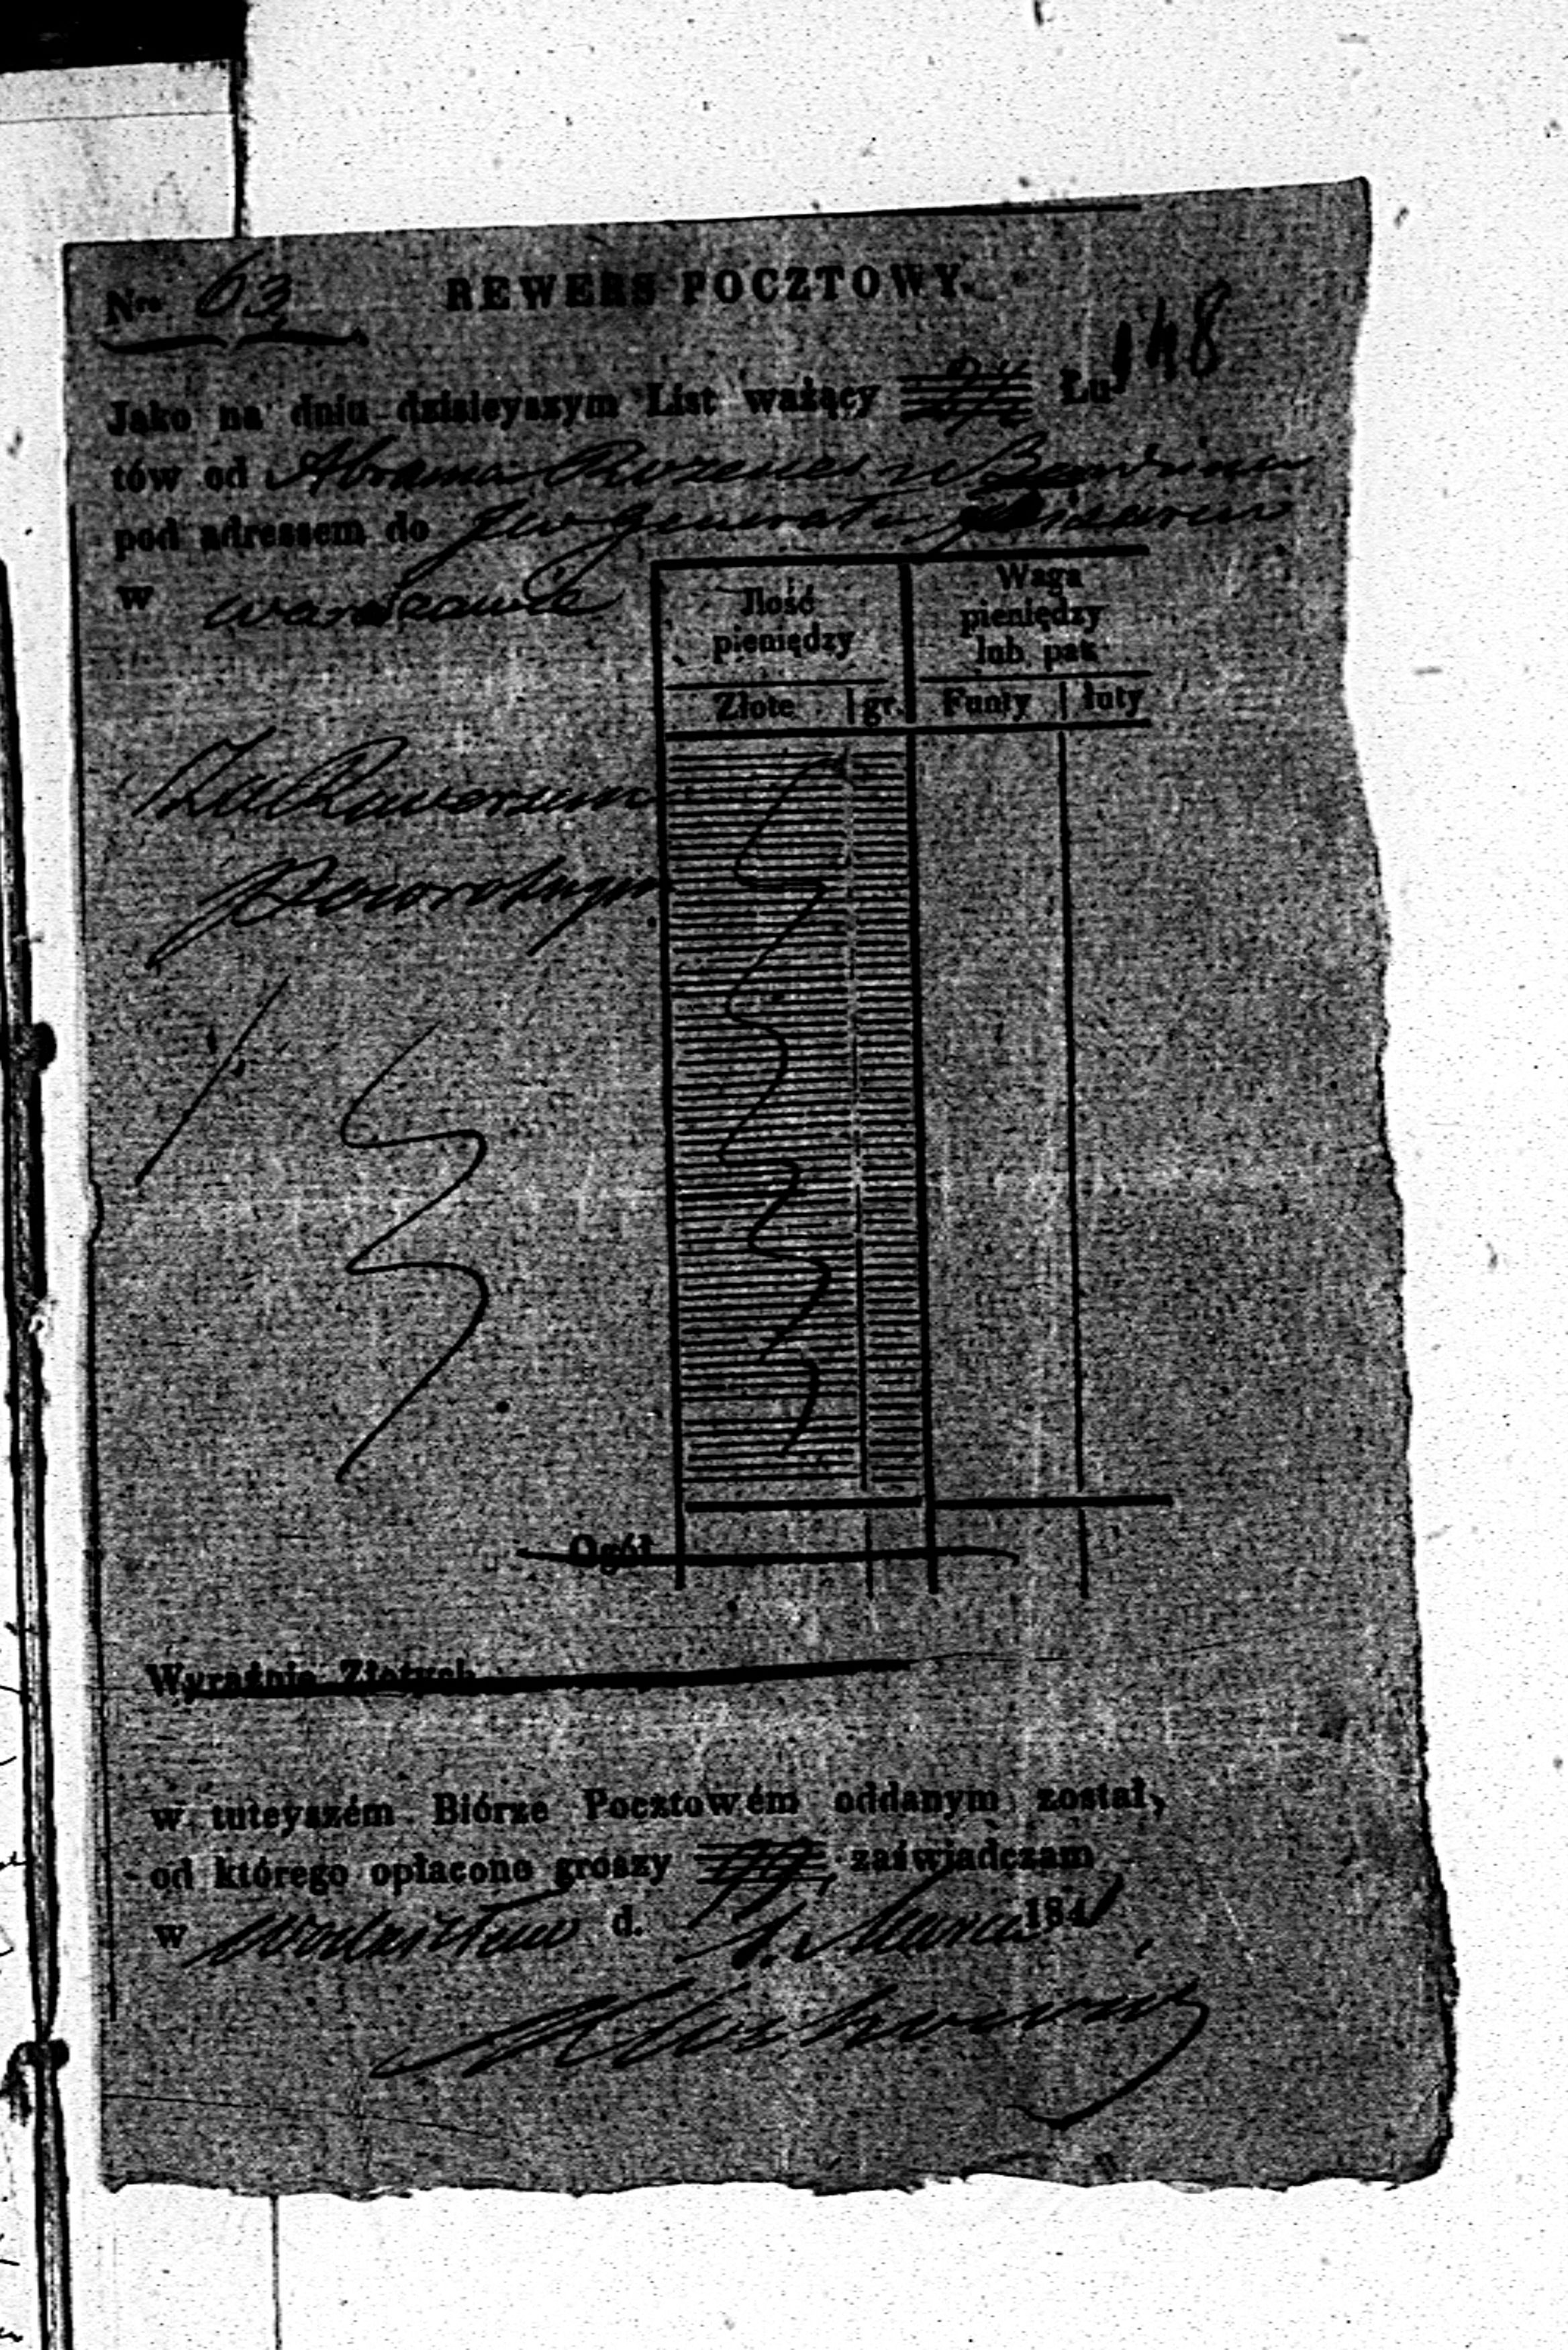 Nro 63 REWERS POCZTOWY.
148
Jako na dniu dzisieyszym List ważący Łu
tów od Abrama
pod adressem do Jen Generała
w Warszawie
Ilość pieniędzy
Waga pieniędzy lub pak
Złote gr. Funty łuty
Za Rewersem
Powrotnym
Ogół
Wyraźnie Złotych
w tuteyszém Biórze Pocztowém oddanym został,
od którego opłacono groszy zaświadczam
w d. Marca 1841